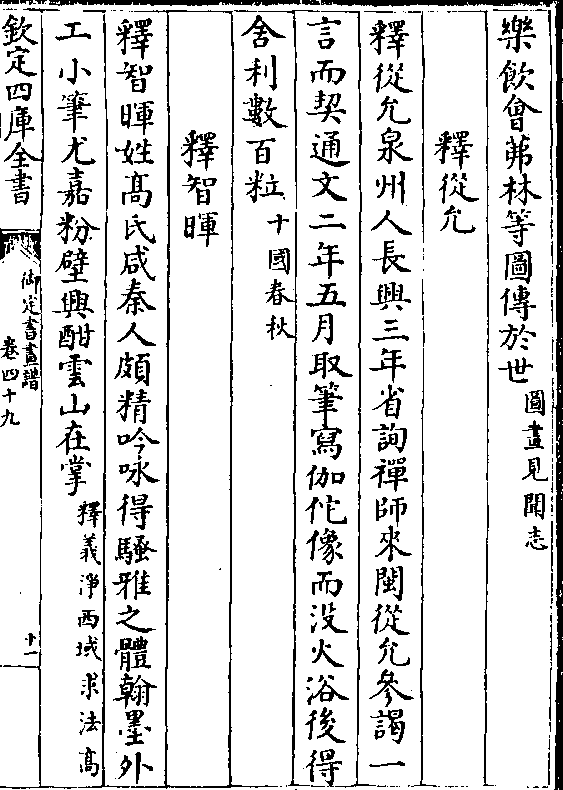 樂飲會茀林等圖傳於世圖畫見聞志
釋從允
釋從允泉州人長興三年省詢禪師來閩從允參謁一
言而契通文二年五月取筆寫伽佗像而没火浴後得
舍利數百粒十國春秋
釋智暉
釋智暉姓髙氏咸秦人頗精吟咏得騷雅之體翰墨外
工小筆尤嘉粉壁興酣雲山在掌釋義淨西域求法髙
欽定四庫全書
御定書畫譜
卷四十九
十一